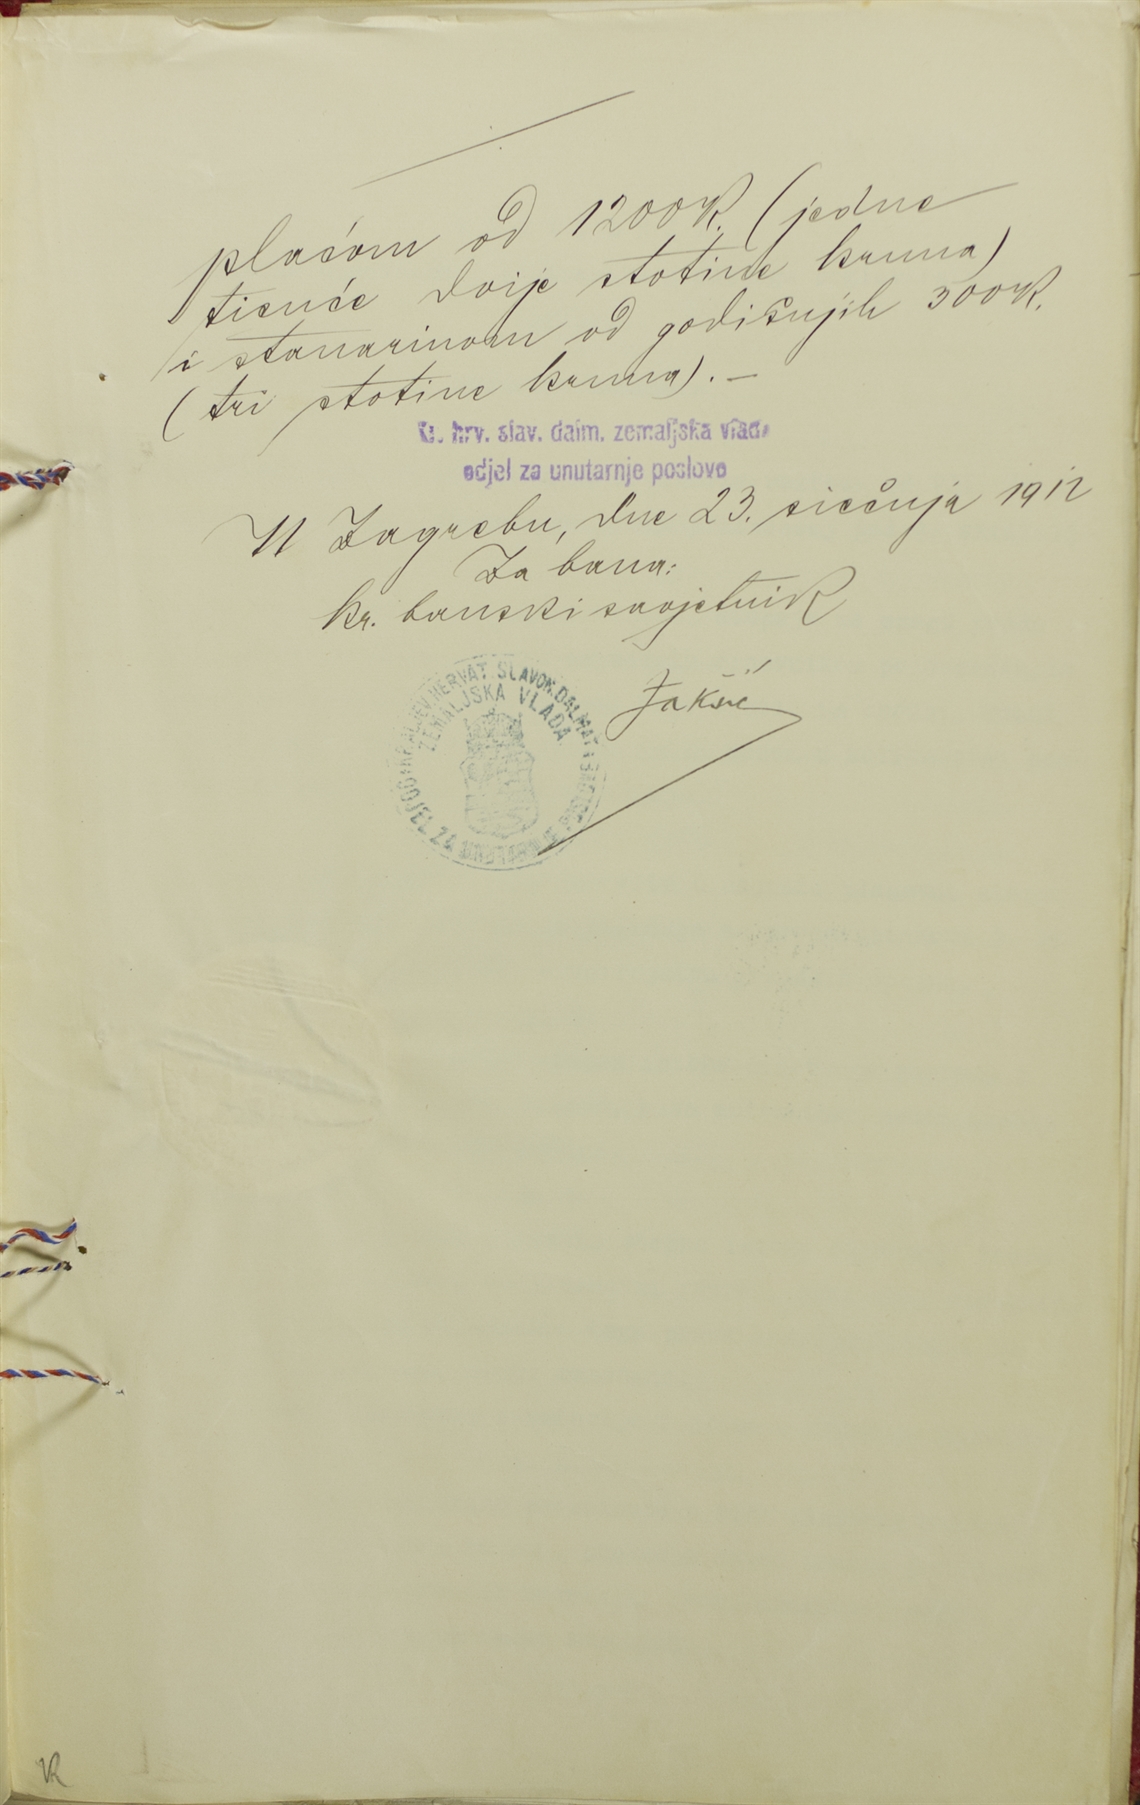 plaćom od 1200K. (jedne
tisuće dvije stotine kruna)
i stanarinom od godišnjih 300K.
(tri stotine kruna). —
K. hrv. slav. dalm. zemaljska vlada
odjel za unutarnje poslove
U Zagrebu, dne 23. siečnja 1912
Za bana:
kr. banski savjetnik
Jakšić
HRVAT. SLAVON. DALMAT.
ZEMALJSKA VLADA
ODJEL ZA UNUTARNJE POSLOVE